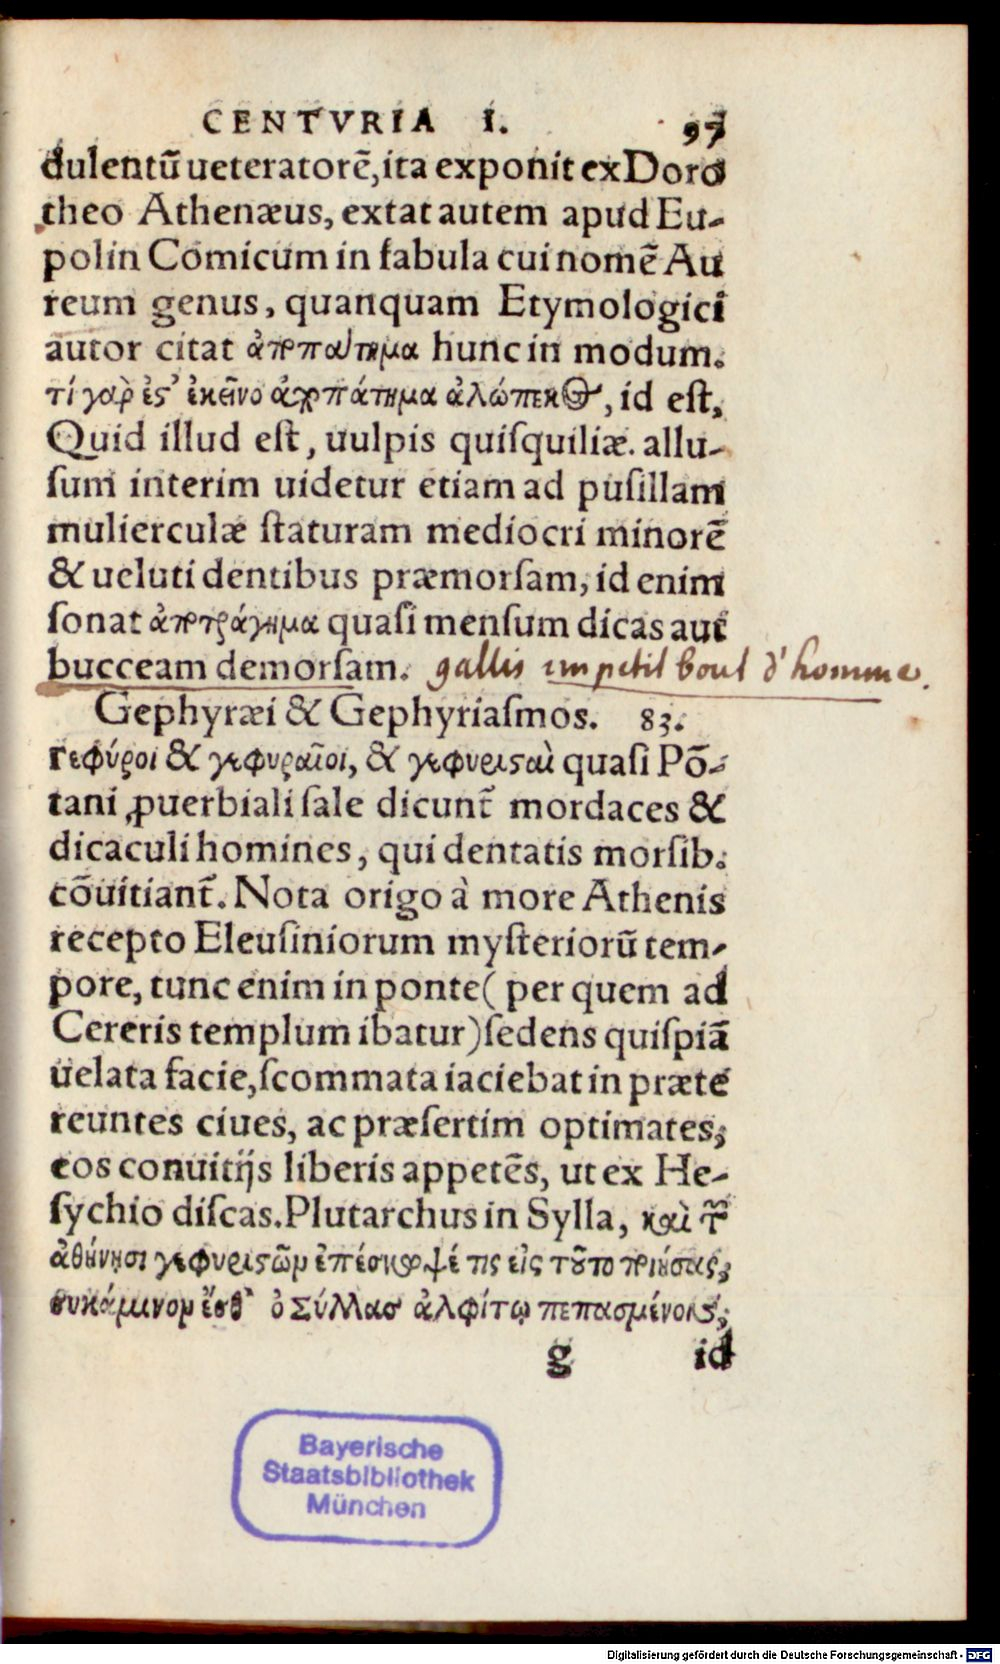 CENTVRIA I. 97
dulentũ ueteratorẽ, ita exponit ex Doro
theo Athenæus, extat autem apud Eu-
polin Comicum in fabula cui nomẽ Au
reum genus, quanquam Etymologici
autor citat hunc in modum.
τί γαρ̀ ἐς' ἐκεῖνο ἀλώπεκος, id eſt,
Quid illud eſt, uulpis quiſquiliæ. allu-
ſum interim uidetur etiam ad puſillam
mulierculæ ſtaturam mediocri minorẽ
& ueluti dentibus præmorſam, id enim
ſonat quaſi menſum dicas aut
bucceam demorſam. gallis un petit bout d'homme.
Gephyræi & Gephyriaſmos. 83.
Γεφύροι & γεφυραῖοι, & γεφυριςαὶ quaſi Põ-
tani ꝓuerbiali ſale dicunt̃ mordaces &
dicaculi homines, qui dentatis morſib.
cõuitiant̃. Nota origo à more Athenis
recepto Eleuſiniorum myſteriorũ tem-
pore, tunc enim in ponte ( per quem ad
Cereris templum ibatur) ſedens quiſpiã
uelata facie, ſcommata iaciebat in præte
reuntes ciues, ac præſertim optimates,
eos conuitijs liberis appetẽs, ut ex He-
ſychio diſcas. Plutarchus in Sylla, καὶ τ̃
ἀθήνησι γεφυριςῶν ἐπέσκωψέ τις εἰς τȣ̃το ποιήσας,
συκάμινον ἔσθ' ὁ Σύλλας ἀλφίτῳ πεπασμένον,
g id
Bayerische
Staatsbibliothek
München
Digitalisierung gefördert durch die Deutsche Forschungsgemeinschaft - DFG